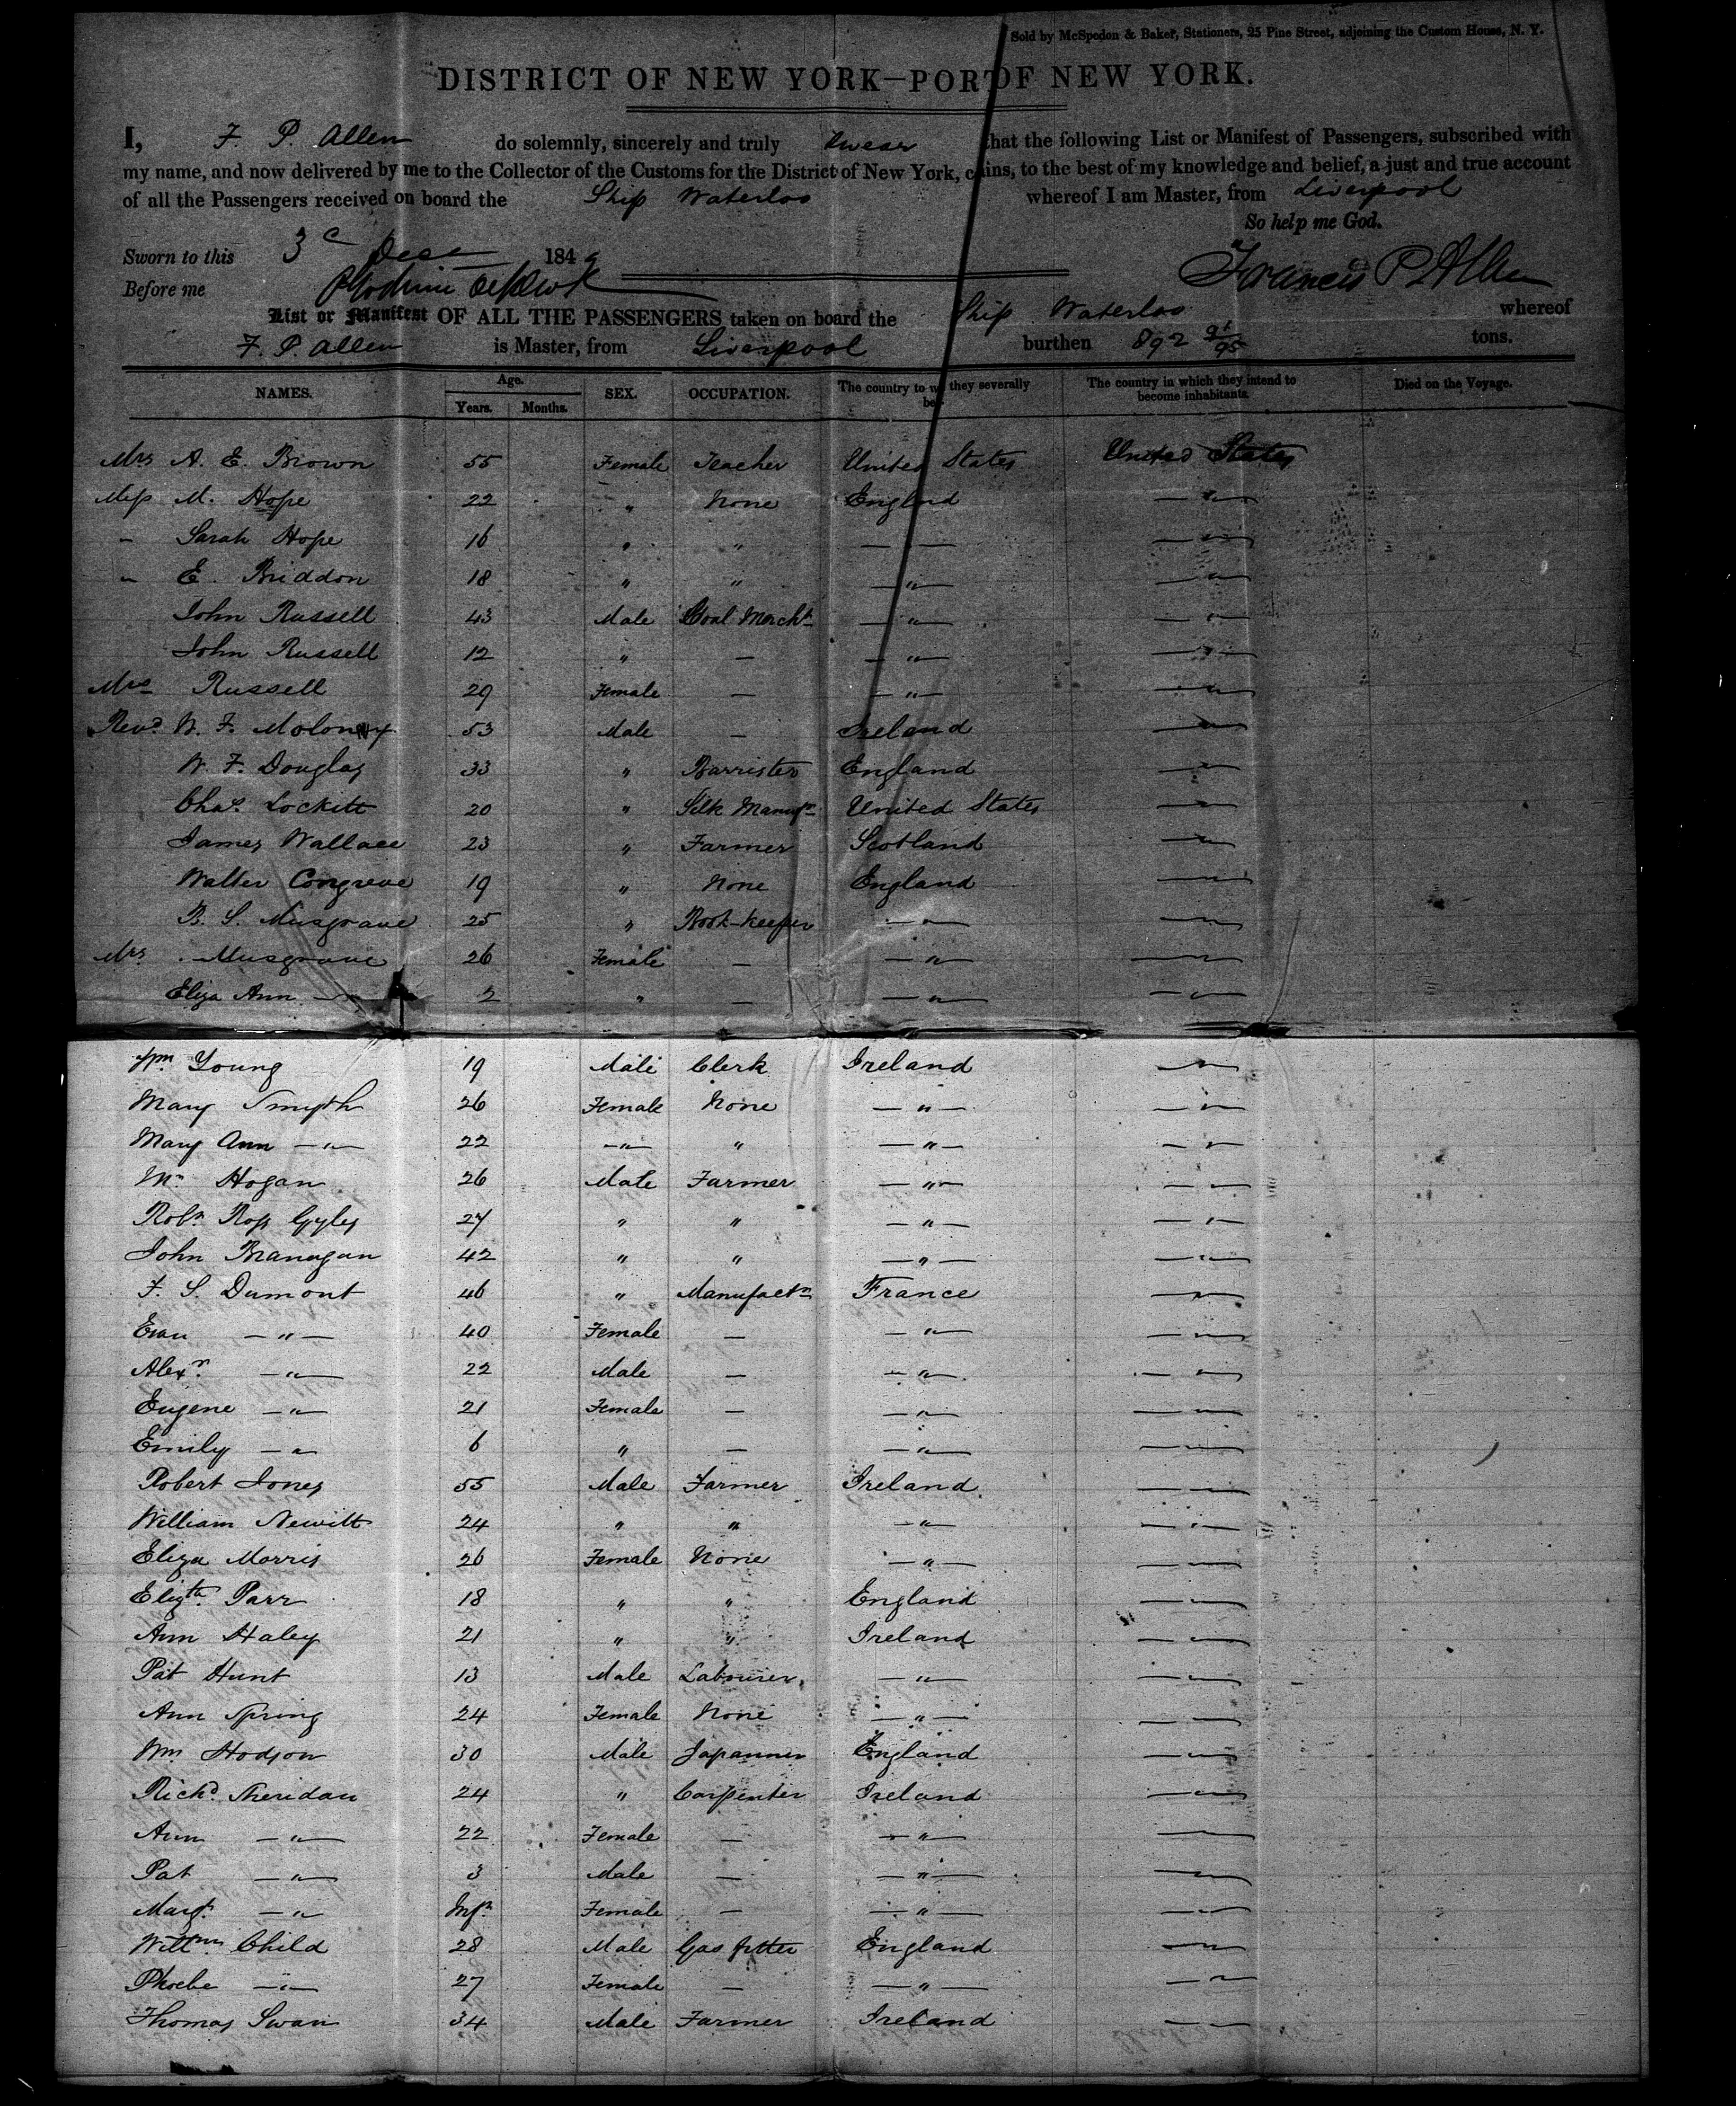 Sold by McSpedon & Baker, Stationers, 25 Pine Street, adjoining the Custom House, N. Y.
DISTRICT OF NEW YORK—PORT OF NEW YORK.
I, F. P. Allen do solemnly, sincerely and truly swear that the following List or Manifest of Passengers, subscribed with
my name, and now delivered by me to the Collector of the Customs for the District of New York, c ins, to the best of my knowledge and belief, a just and true account
of all the Passengers received on board the Ship Waterloo whereof I am Master, from Liverpool
So help me God.
Sworn to this 3 Dec 1849 Francis P Allen
Before me
List or Manifest OF ALL THE PASSENGERS taken on board the Ship Waterloo whereof
F. P. Allen is Master, from Liverpool burthen 892 tons.
NAMES. Age. Years. Months. SEX. OCCUPATION. The country to w they severally be The country in which they intend to become inhabitants. Died on the Voyage.
Mrs A. E. Brown 55 Female Teacher United States United States
Miss M. Hope 22 " None England — " —
" Sarah Hope 16 " " — " — — " —
" E. Briddon 18 " " — " — — " —
John Russell 43 Male Coal Mercht — " — — " —
John Russell 12 " — — " — — " —
Mrs Russell 29 Female — — " — — " —
Revd W. F. Molony 53 Male — Ireland — " —
W. F. Douglas 33 " Barrister England — " —
Chas. Lockitt 20 " Silk Manufr United States — " —
James Wallace 23 " Farmer Scotland — " —
Walter Congreve 19 " None England — " —
B. S. Musgrave 25 " Book-keeper — " — — " —
Mrs. Musgrave 26 Female — — " — — " —
Eliza Ann — " — 2 " — — " — — " —
Wm Young 19 Male Clerk Ireland — " —
Mary Smyth 26 Female None — " — — " —
Mary Ann — " — 22 — " — " — " — — " —
Mr Hogan 26 Male Farmer — " — — " —
Robt Ross Gyles 27 " " — " — — " —
John Branagan 42 " " — " — — " —
F. S. Dumont 46 " Manufactr France — " —
— " — 40 Female — — " — — " —
Alexr — " — 22 Male — — " — — " —
Eugene — " — 21 Female — — " — — " —
Emily — " — 6 " — — " — — " —
Robert Jones 55 Male Farmer Ireland — " —
William Newitt 24 " " — " — — " —
Eliza Morris 26 Female None — " — — " —
Elizth Parr 18 " " England — " —
Ann Haley 21 " " Ireland — " —
Pat Hunt 13 Male Labourer — " — — " —
Ann Spring 24 Female None — " — — " —
Wm Hodson 30 Male Japanner England — " —
Richd Sheridan 24 " Carpenter Ireland — " —
Ann — " — 22 Female — — " — — " —
Pat — " — 3 Male — — " — — " —
Margt — " — Inft Female — — " — — " —
Willm Child 28 Male Gas fitter England — " —
Phoebe — " — 27 Female — — " — — " —
Thomas Swan 34 Male Farmer Ireland — " —